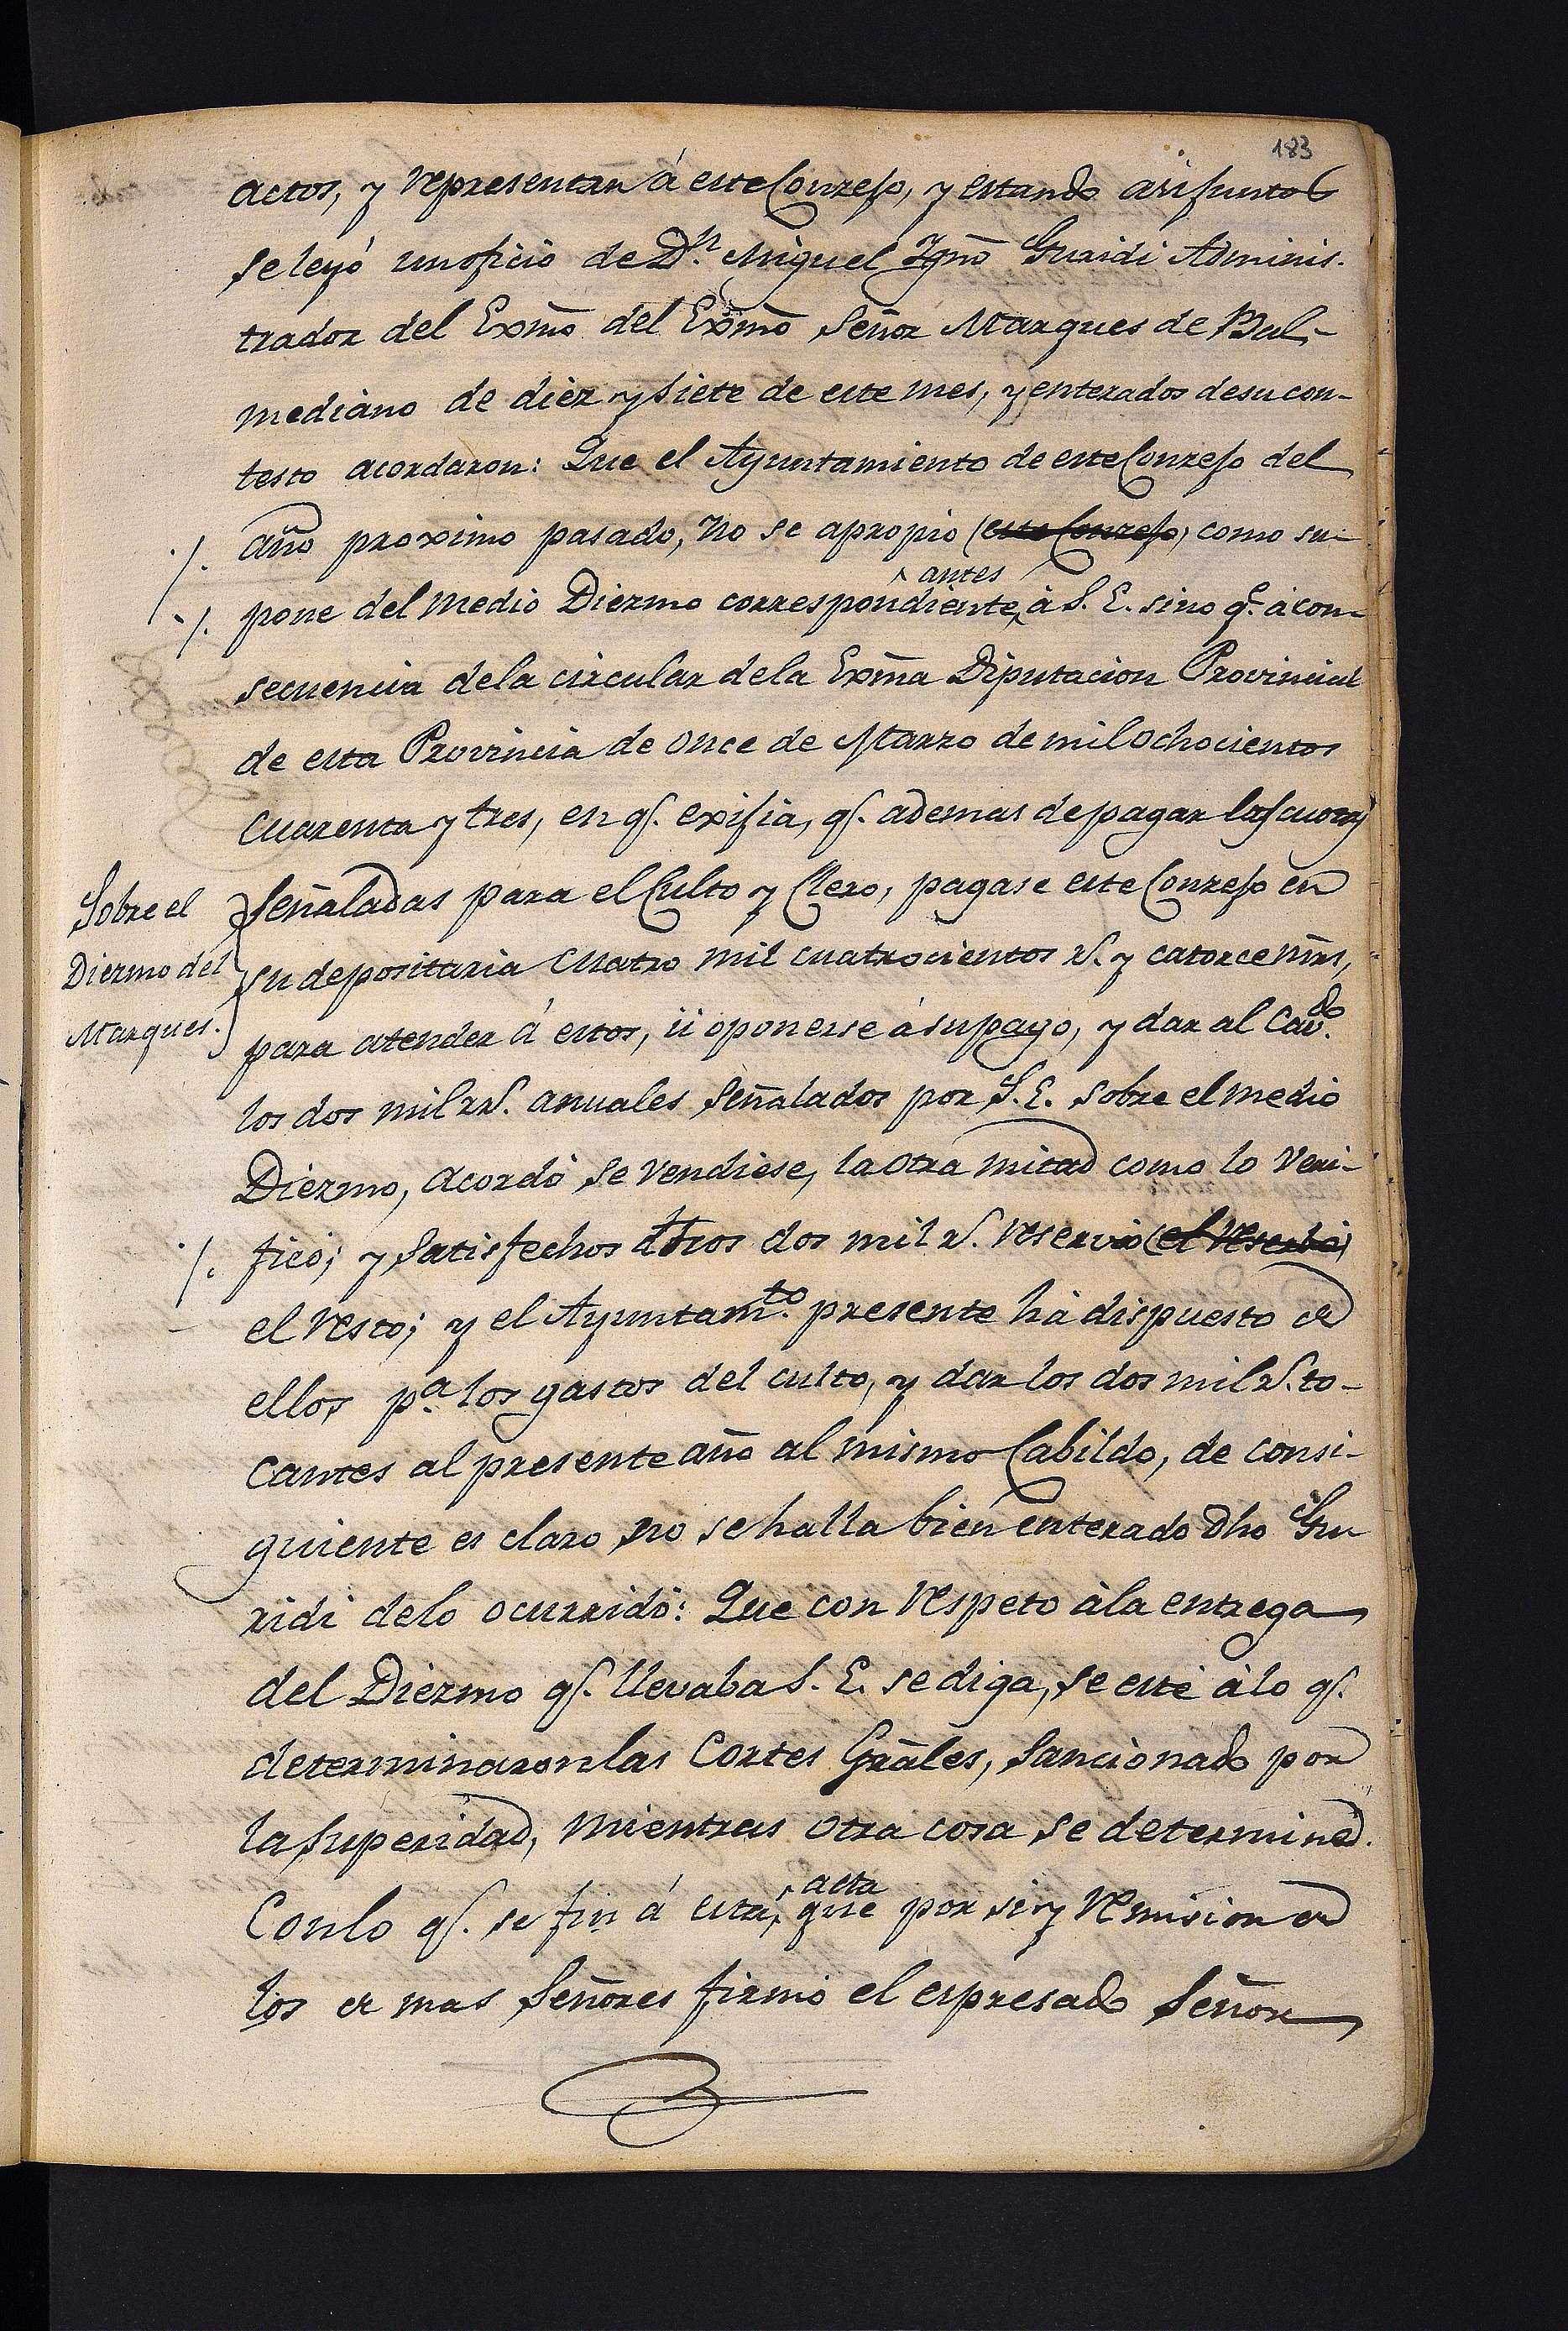 183
actos, y representan á este Conzejo, y estando asi juntos
se leyó un oficio de Dn. Miguel Ygno Guridi Adminis-
trador del Exmo del Exmo Señor Marques de Bal-
mediano de diez y siete de este mes, y enterados de su con-
testo acordaron: Que el Ayuntamiento de este Conzejo del
año proximo pasado, no se apropio (este Conzejo) como su-
antes
pone del medio Diezmo correspondiente, à S. E. sino q.e à con-
secuencia dela circular dela Exma Diputacion Provincial
de esta Provincia de once de Marzo de mil ochocientos
cuarenta y tres, en q.e exijia, q.e ademas de pagar las cuotas
Sobre el
Diezmo del
Marques.
señaladas para el Culto y Clero, pagase este Conzejo en
su depositaria cuatro mil cuatrocientos rs. y catorce mrs,
para atender á estos, ú oponerse á su pago, y dar al Cavdo.
los dos mil rs. anuales señalados por S. E. sobre el medio
Diezmo, acordó se vendiese, la otra mitad como lo veri-
ficó; y satisfechos dhos dos mil rs. reservó (el reserbó)
el resto; y el Ayuntamto. presente há dispuesto de
ellos pa. los gastos del culto, y dar los dos mil rs. to-
cantes al presente año al mismo Cabildo, de consi-
guiente es claro no se halla bien enterado dho Gu
ridi delo ocurrido: Que con respeto àla entrega
del Diezmo q.e llevaba S. E. se diga, se esté àlo q.e
determinaron las Cortes Grales, sancionado por
la superidad, mientras otra cosa se determine.
acta
Conlo q.e se fin á esta, que por si y remision de
los de mas Señores firmó el espresado Señor